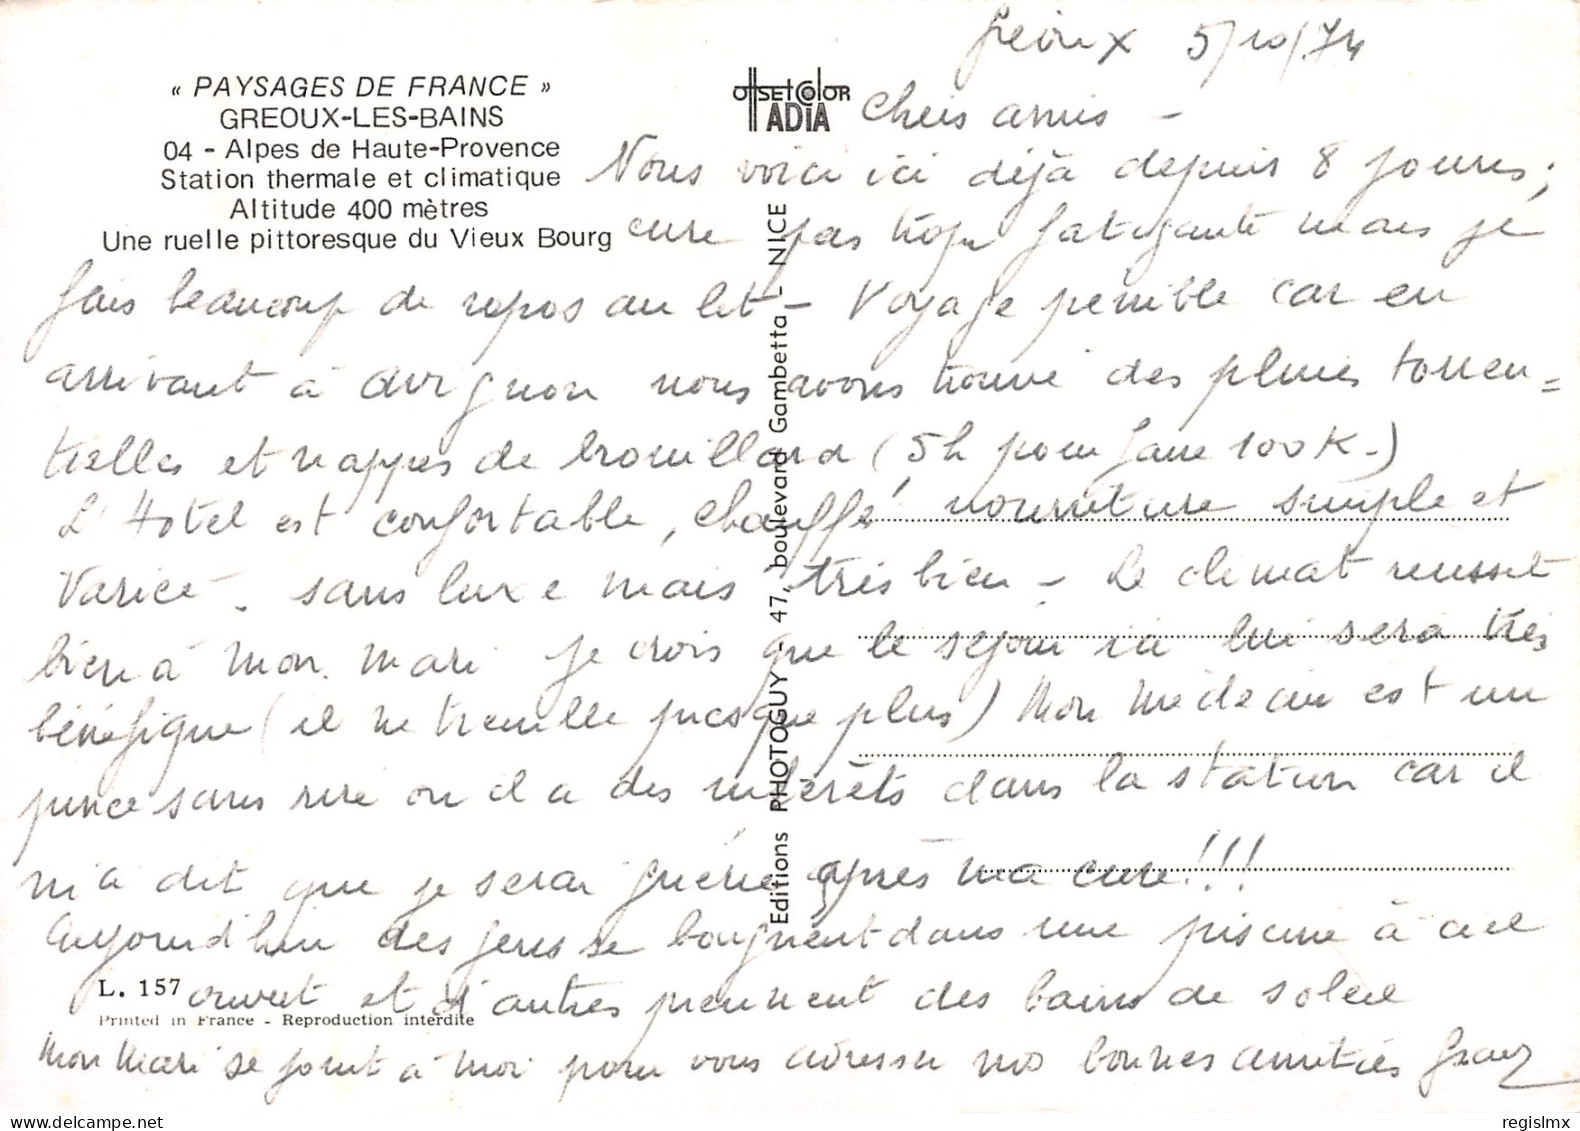 Gréoux 5/10/74
« PAYSAGES DE FRANCE »
GREOUX-LES-BAINS
04 - Alpes de Haute-Provence
Station thermale et climatique
Altitude 400 mètres
Une ruelle pittoresque du Vieux Bourg
OffSEtColoR
ADIA
Editions PHOTOGUY - 47, boulevard Gambetta - NICE
Chers amis -
Nous voici ici déjà depuis 8 jours ;
cure pas trop fatigante mais je
fais beaucoup de repos au lit - Voyage pénible car en
arrivant à Avignon nous avons trouvé des pluies torren=
tielles et nappes de brouillard (5h pour faire 100 K.)
L'Hotel est confortable, chauffé, nourriture simple et
varieé - sans luxe mais très bien - Le climat reussit
bien à mon mari je crois que le séjour ici lui sera très
bénéfique (il ne tremble presque plus) Mon médecin est un
pince sans rire ou il a des intérêts dans la station car il
m'a dit que je serai guérie après ma cure !!!
Aujourd'hui des gens se baignent dans une piscine à ciel
ouvert et d'autres prennent des bains de soleil
Mon Mari se joint à moi pour vous adresser nos bonnes amitiés
L. 157
Printed in France - Reproduction interdite
regislmx